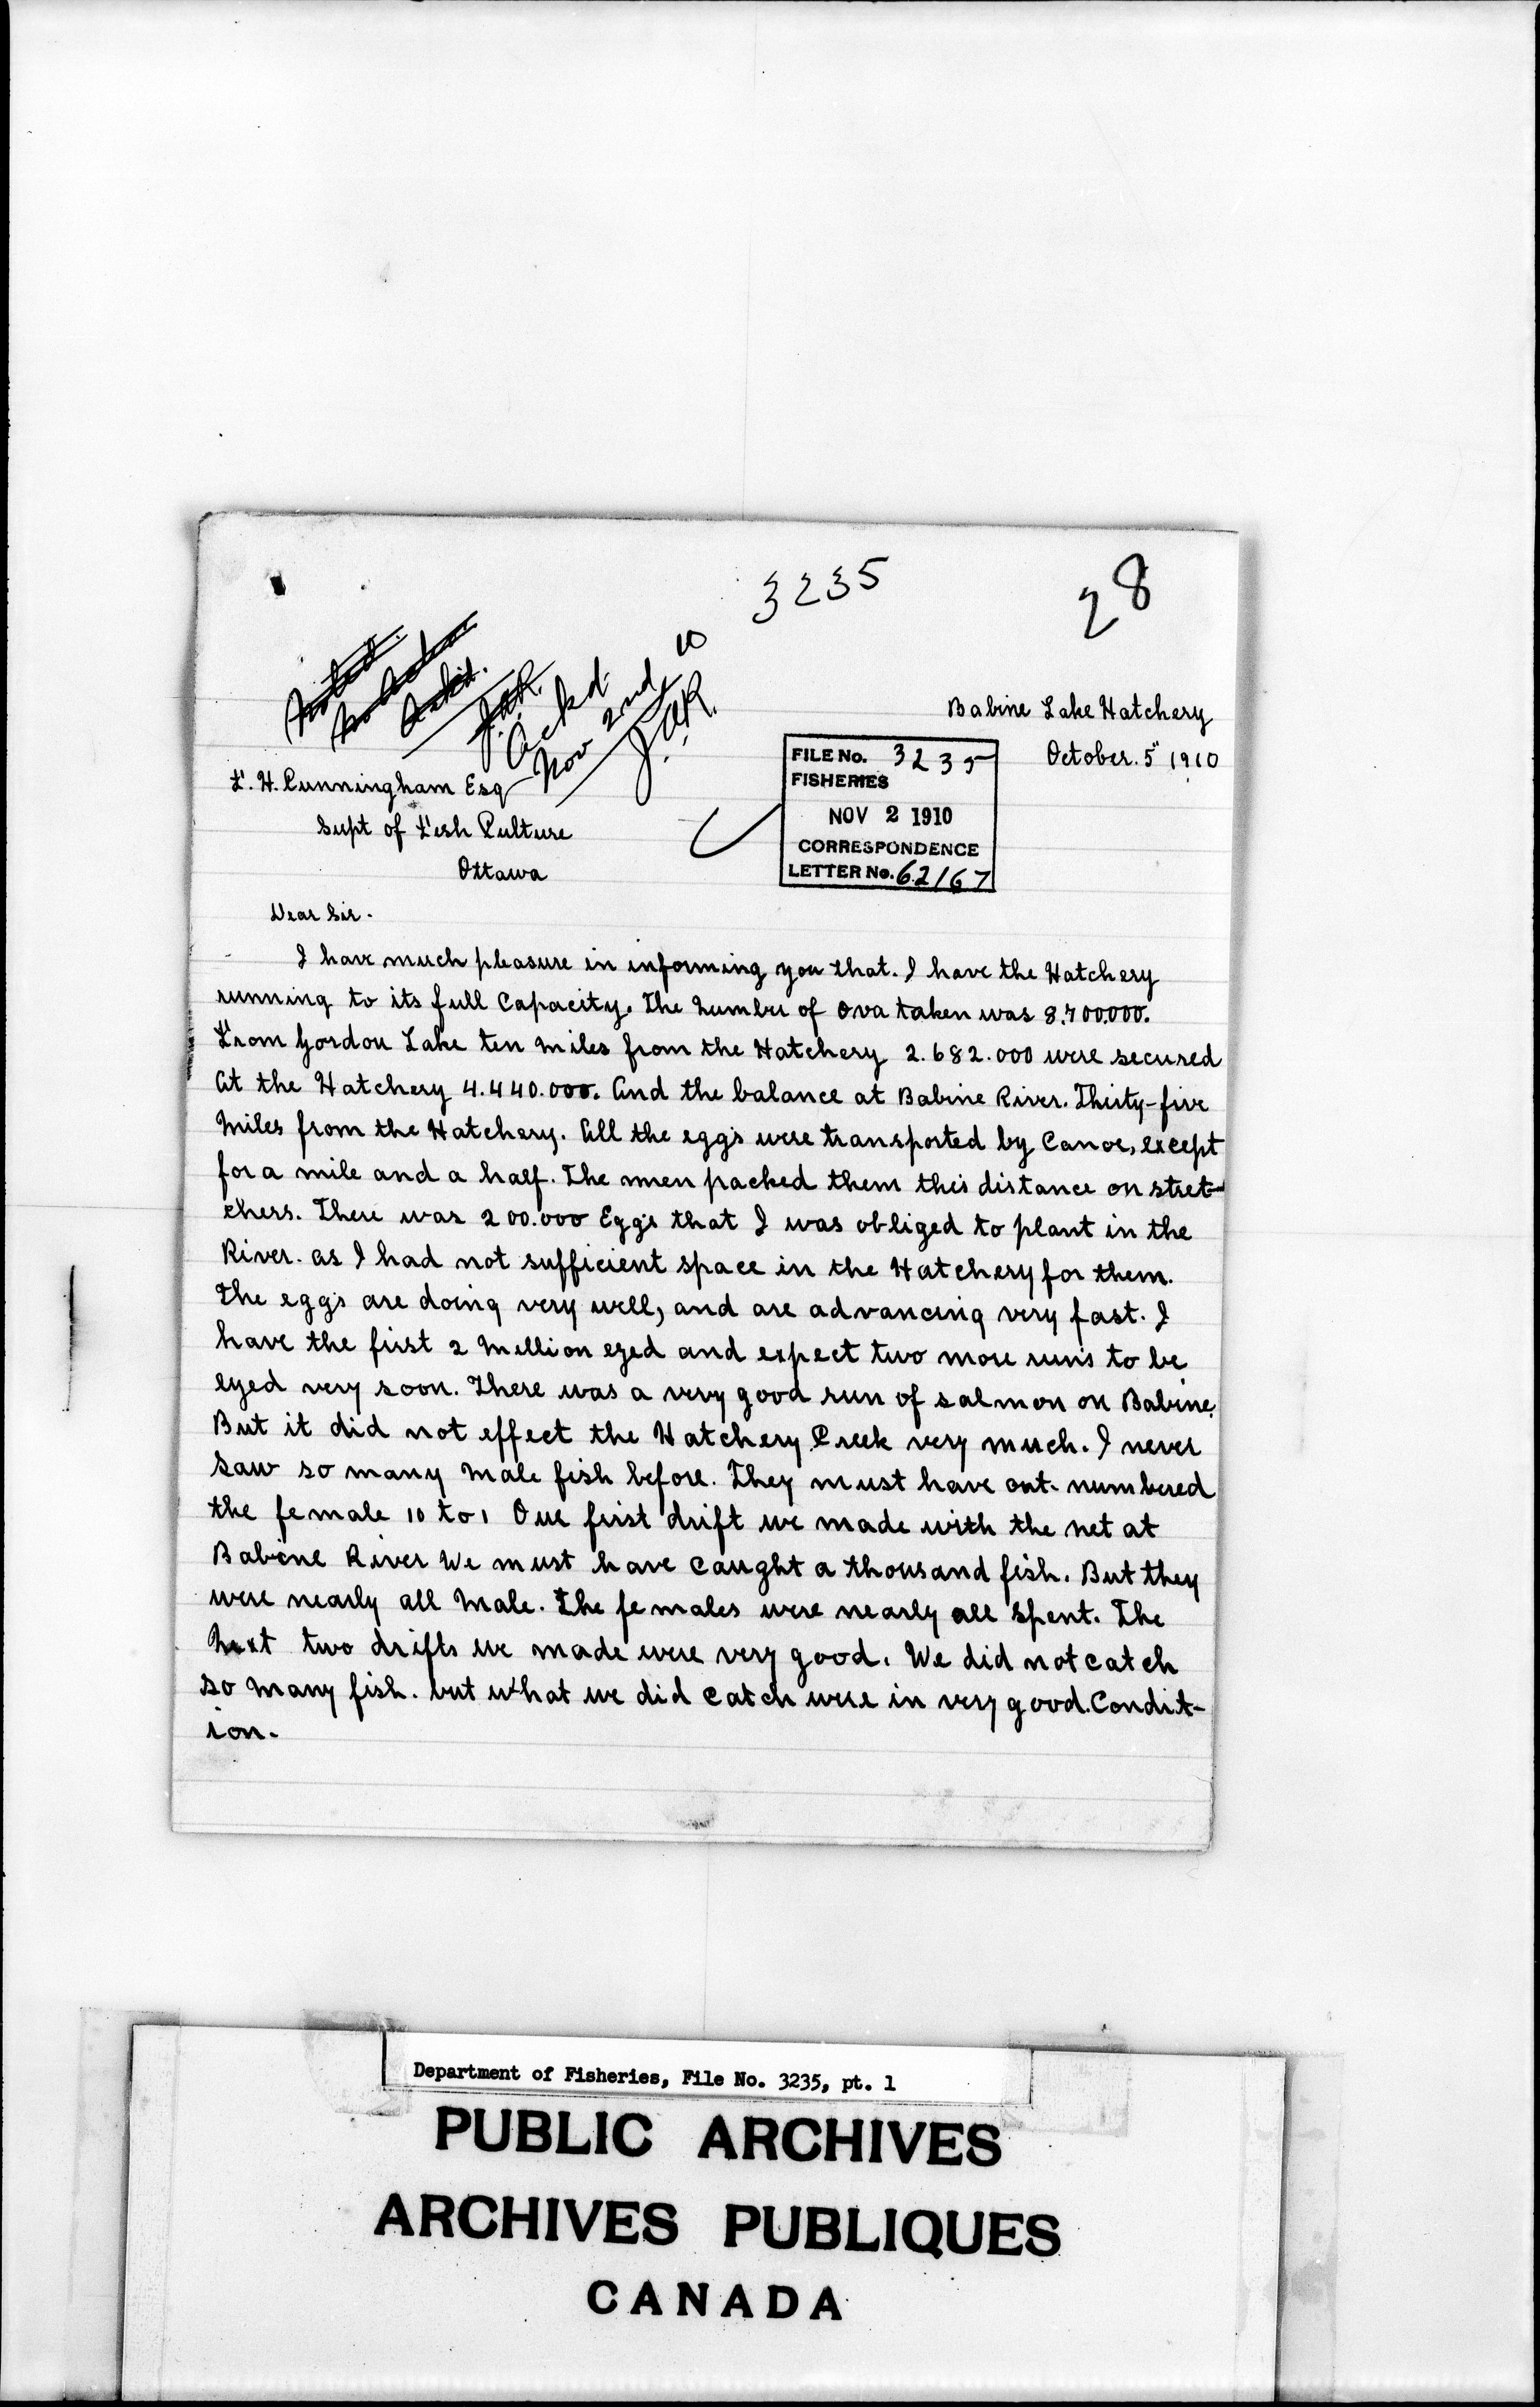 3235
28
Ackd
Nov 2nd 10
J.A.R.
Babine Lake Hatchery
October. 5" 1910
FILE No. 3235
FISHERIES
NOV 2 1910
CORRESPONDENCE
LETTER No. 62167
F. H. Cunningham Esq
Supt of Fish Culture
Ottawa
Dear Sir.
I have much pleasure in informing you that. I have the Hatchery
running to its full Capacity. The number of ova taken was 8.700.000.
From Gordon Lake ten miles from the Hatchery 2.682.000 were secured
At the Hatchery 4.440.000. And the balance at Babine River. Thirty-five
miles from the Hatchery. All the eggs were transported by Canoe, except
for a mile and a half. The men packed them this distance on stret-
chers. There was 200.000 Eggs that I was obliged to plant in the
River. as I had not sufficient space in the Hatchery for them.
The eggs are doing very well, and are advancing very fast. I
have the first 2 million eyed and expect two more runs to be
eyed very soon. There was a very good run of salmon on Babine.
But it did not effect the Hatchery Creek very much. I never
saw so many male fish before. They must have out-numbered
the female 10 to 1 Our first drift we made with the net at
Babine River We must have caught a thousand fish. But they
were nearly all male. The females were nearly all spent. The
next two drifts we made were very good. We did not catch
so many fish. but what we did catch were in very good. Condit-
ion.
Department of Fisheries, File No. 3235, pt. 1
PUBLIC ARCHIVES
ARCHIVES PUBLIQUES
CANADA